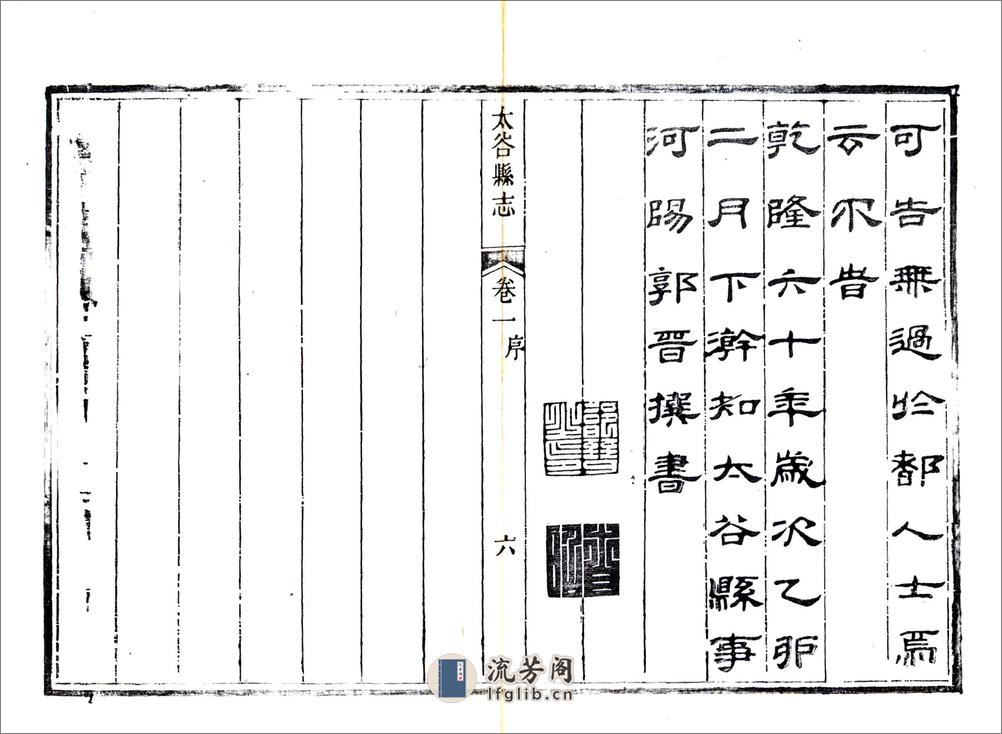 可告無過於都人士焉
云尒旹
乾隆六十年歲次乙卯
二月下澣知太谷縣事
河陽郭晉撰書
太谷縣志
卷一
序
六
流芳阁
lfglib.cn